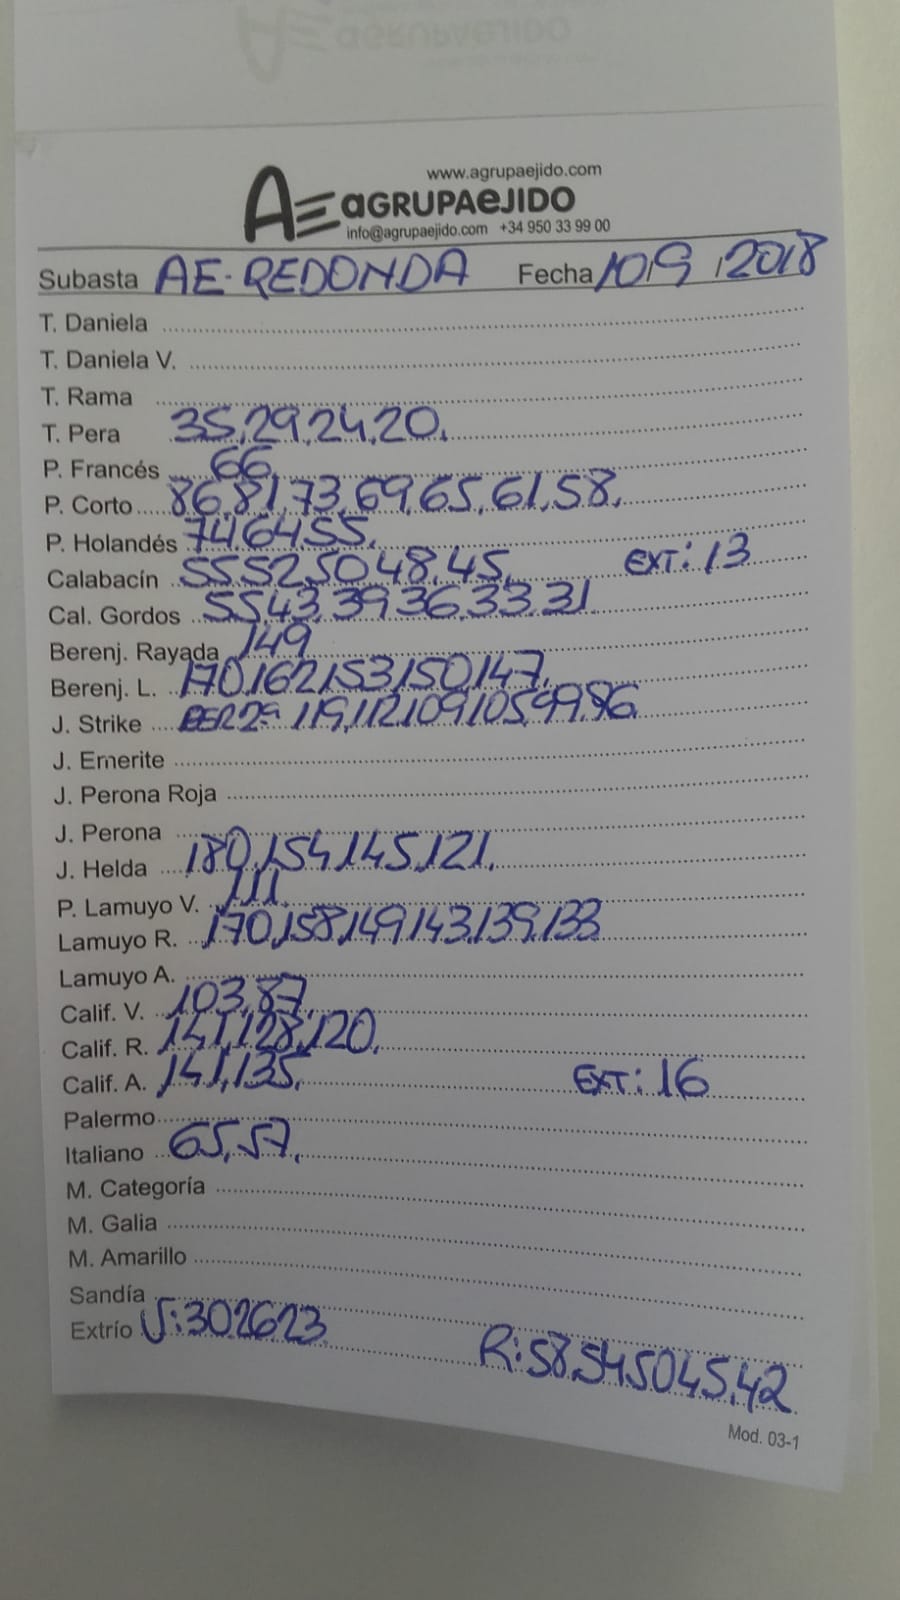 www.agrupaejido.com
AE aGRUPAeJIDO
info@agrupaejido.com +34 950 33 99 00
Subasta AE-REDONDA Fecha 10/9/2018
T. Daniela
T. Daniela V.
T. Rama
T. Pera 35,29,24,20.
P. Francés 66.
P. Corto 86,81,73,69,65,61,58.
P. Holandés 74,64,55.
Calabacín 55,52,50,48,45. EXT: 13
Cal. Gordos 55,43,39,36,33,31
Berenj. Rayada 149
Berenj. L. 170,162,153,150,147.
J. Strike 119,112,109,105,99,96.
J. Emerite
J. Perona Roja
J. Perona
J. Helda 180,154,145,121.
P. Lamuyo V. 111.
Lamuyo R. 170,158,149,143,139,133
Lamuyo A.
Calif. V. 103,87.
Calif. R. 141,128,120.
Calif. A. 141,135. EXT: 16
Palermo
Italiano 65,57.
M. Categoría
M. Galia
M. Amarillo
Sandía
Extrío V:30,26,23. R:58,54,50,45,42.
Mod. 03-1